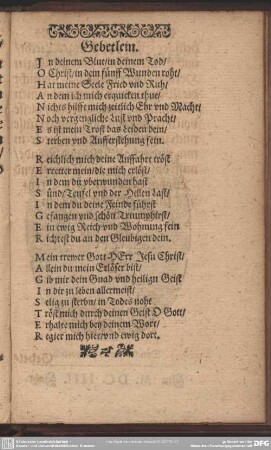 Gebetlein.
In deinem Blut/in deinem Tod/
O Christ/in dein fünff Wunden roht/
Hat meine Seele Fried vnd Ruh/
An dem ich mich erquicken thue/
Nichts hilfft mich zeitlich Ehr vnd Macht/
Noch vergengliche Lust vnd Pracht/
Es ist mein Trost das Leiden dein/
Sterben vnd Aufferstehung fein.
Reichlich mich deine Auffahrt tröst
Erretter mein/die mich erlöst/
In dem du vberwunden hast
Sünd/Teufel vnd der Hellen Last/
In dem du deine Feinde führst
Gefangen vnd schön Triumphirst/
Ein ewig Reich vnd Wohnung fein
Richtest du an den Gleubigen dein.
Mein trewer Gott HErr Jesu Christ/
Allein du mein Erlöser bist/
Gib mir dein Gnad vnd heilign Geist
In dir zu leben allermeist/
Selig zu sterbn/in Todes noht
Tröst mich durch deinen Geist O Gott/
Erhalte mich bey deinem Wort/
Regier mich hier/vnd ewig dort.
DFG